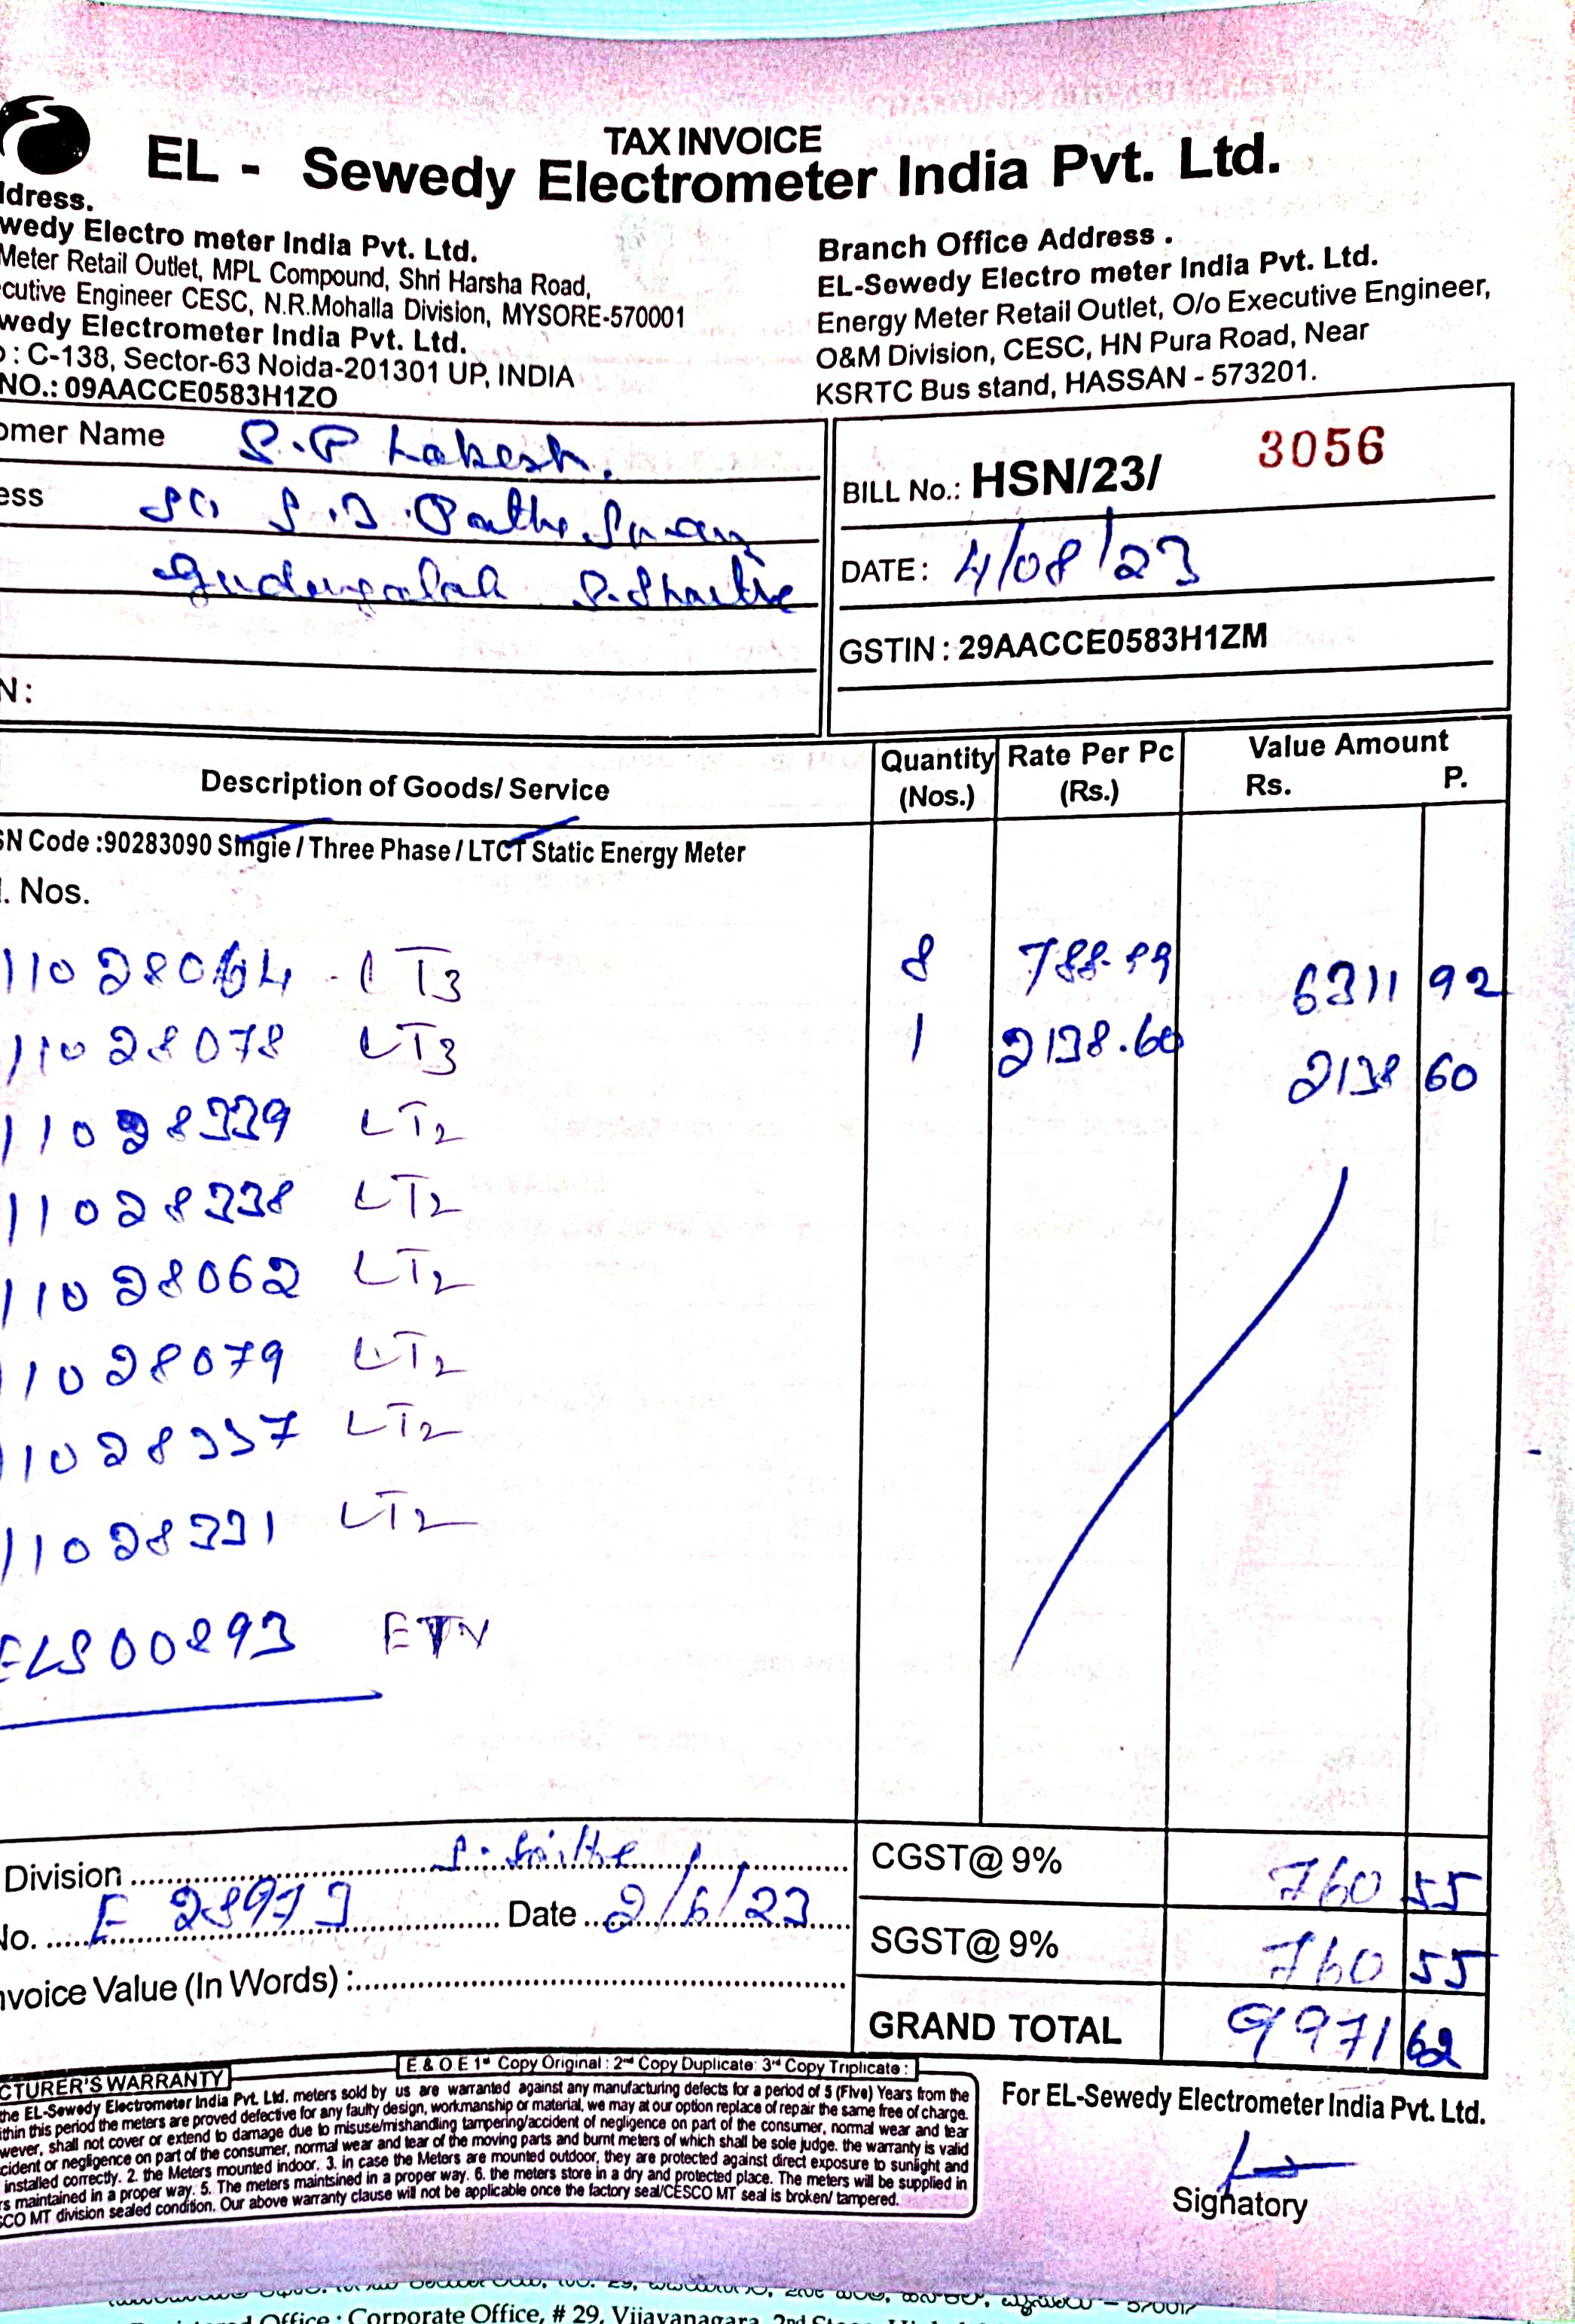 TAX INVOICE
EL - Sewedy Electrometer India Pvt. Ltd.
dress.
wedy Electro meter India Pvt. Ltd.
Meter Retail Outlet, MPL Compound, Shri Harsha Road,
cutive Engineer CESC, N.R.Mohalla Division, MYSORE-570001
wedy Electrometer India Pvt. Ltd.
: C-138, Sector-63 Noida-201301 UP, INDIA
NO.: 09AACCE0583H1ZO
Branch Office Address .
EL-Sewedy Electro meter India Pvt. Ltd.
Energy Meter Retail Outlet, O/o Executive Engineer,
O&M Division, CESC, HN Pura Road, Near
KSRTC Bus stand, HASSAN - 573201.
omer Name S.P Lokesh.
ess
BILL No.: HSN/23/ 3056
DATE: 4/08/23
GSTIN : 29AACCE0583H1ZM
N :
Description of Goods/ Service
Quantity (Nos.)
Rate Per Pc (Rs.)
Value Amount
Rs. P.
SN Code :90283090 Single / Three Phase / LTCT Static Energy Meter
. Nos.
11028064 LT3 8 788.99 6311 92
11028078 LT3 1 2138.60 2138 60
11028339 LT2
11028338 LT2
11028062 LT2
11028079 LT2
11028337 LT2
11028331 LT2
ELS00893 ETV
Division
CGST@ 9% 760 55
No. Date 2/6/23
SGST@ 9% 760 55
nvoice Value (In Words) :
GRAND TOTAL 9971 62
E & O E 1st Copy Original : 2nd Copy Duplicate: 3rd Copy Triplicate :
CTURER'S WARRANTY
the EL-Sewedy Electrometer India Pvt. Ltd. meters sold by us are warranted against any manufacturing defects for a period of 5 (Five) Years from the
ithin this period the meters are proved defective for any faulty design, workmanship or material, we may at our option replace of repair the same free of charge.
wever, shall not cover or extend to damage due to misuse/mishandling tampering/accident of negligence on part of the consumer, normal wear and tear
cident or negligence on part of the consumer, normal wear and tear of the moving parts and burnt meters of which shall be sole judge. the warranty is valid
installed correctly. 2. the Meters mounted indoor. 3. in case the Meters are mounted outdoor, they are protected against direct exposure to sunlight and
s maintained in a proper way. 5. The meters maintsined in a proper way. 6. the meters store in a dry and protected place. The meters will be supplied in
SCO MT division sealed condition. Our above warranty clause will not be applicable once the factory seal/CESCO MT seal is broken/ tampered.
For EL-Sewedy Electrometer India Pvt. Ltd.
Signatory
Office : Corporate Office, # 29, Vijayanagara, 2nd